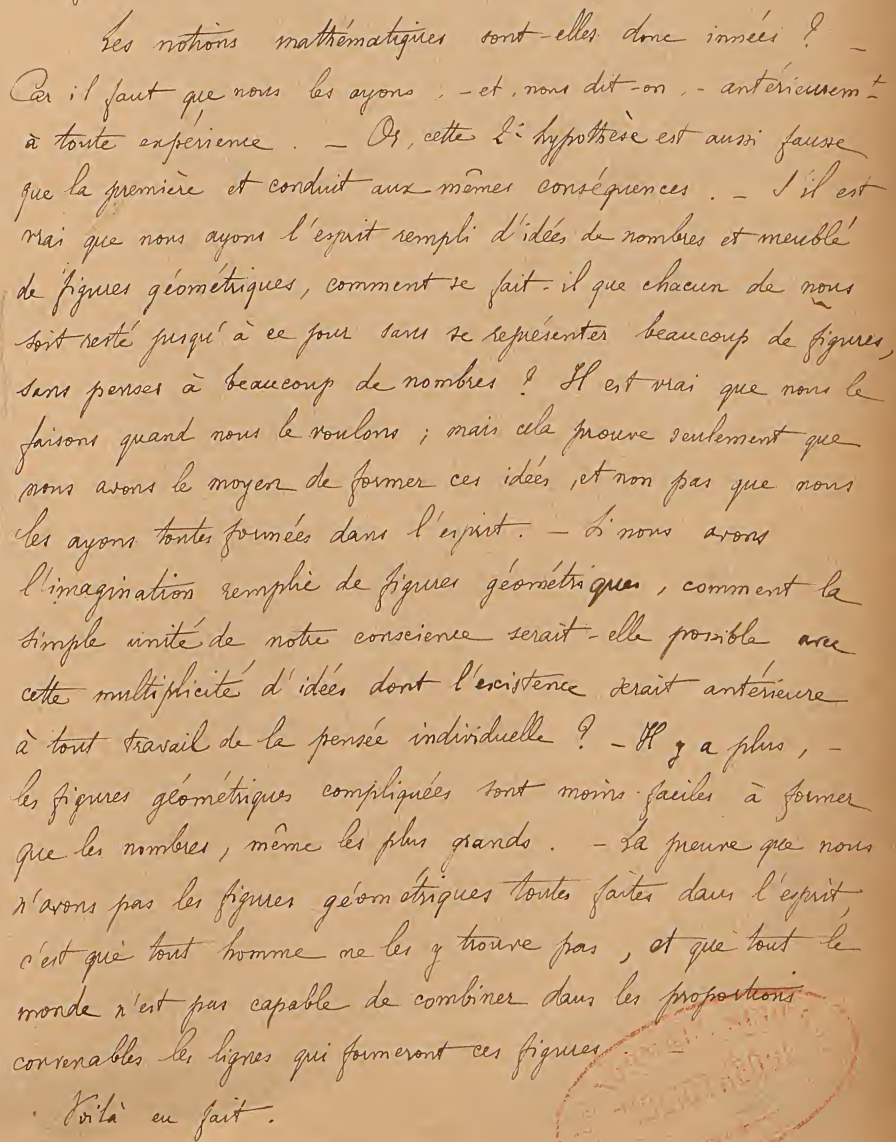 Les notions mathématiques sont-elles donc innées ? _
Car il faut que nous les ayons, - et, nous dit-on, - antérieurem.t
à toute expérience. _ Or, cette 2e hypothèse est aussi fausse
que la première et conduit aux mêmes conséquences. _ S'il est
vrai que nous ayons l'esprit rempli d'idées de nombres et meublé
de figures géométriques, comment se fait-il que chacun de nous
soit resté jusqu'à ce jour sans se représenter beaucoup de figures,
sans penser à beaucoup de nombres ? Il est vrai que nous le
faisons quand nous le voulons ; mais cela prouve seulement que
nous avons le moyen de former ces idées, et non pas que nous
les ayons toutes formées dans l'esprit. - Si nous avons
l'imagination remplie de figures géométriques, comment la
simple unité de notre conscience serait-elle possible avec
cette multiplicité d'idées dont l'existence serait antérieure
à tout travail de la pensée individuelle ? - Il y a plus, -
les figures géométriques compliquées sont moins faciles à former
que les nombres, même les plus grands. - La preuve que nous
n'avons pas les figures géométriques toutes faites dans l'esprit
c'est que tout homme ne les y trouve pas, et que tout le
monde n'est pas capable de combiner dans les proportions
convenables les lignes qui formeront ces figures
Voilà en fait.